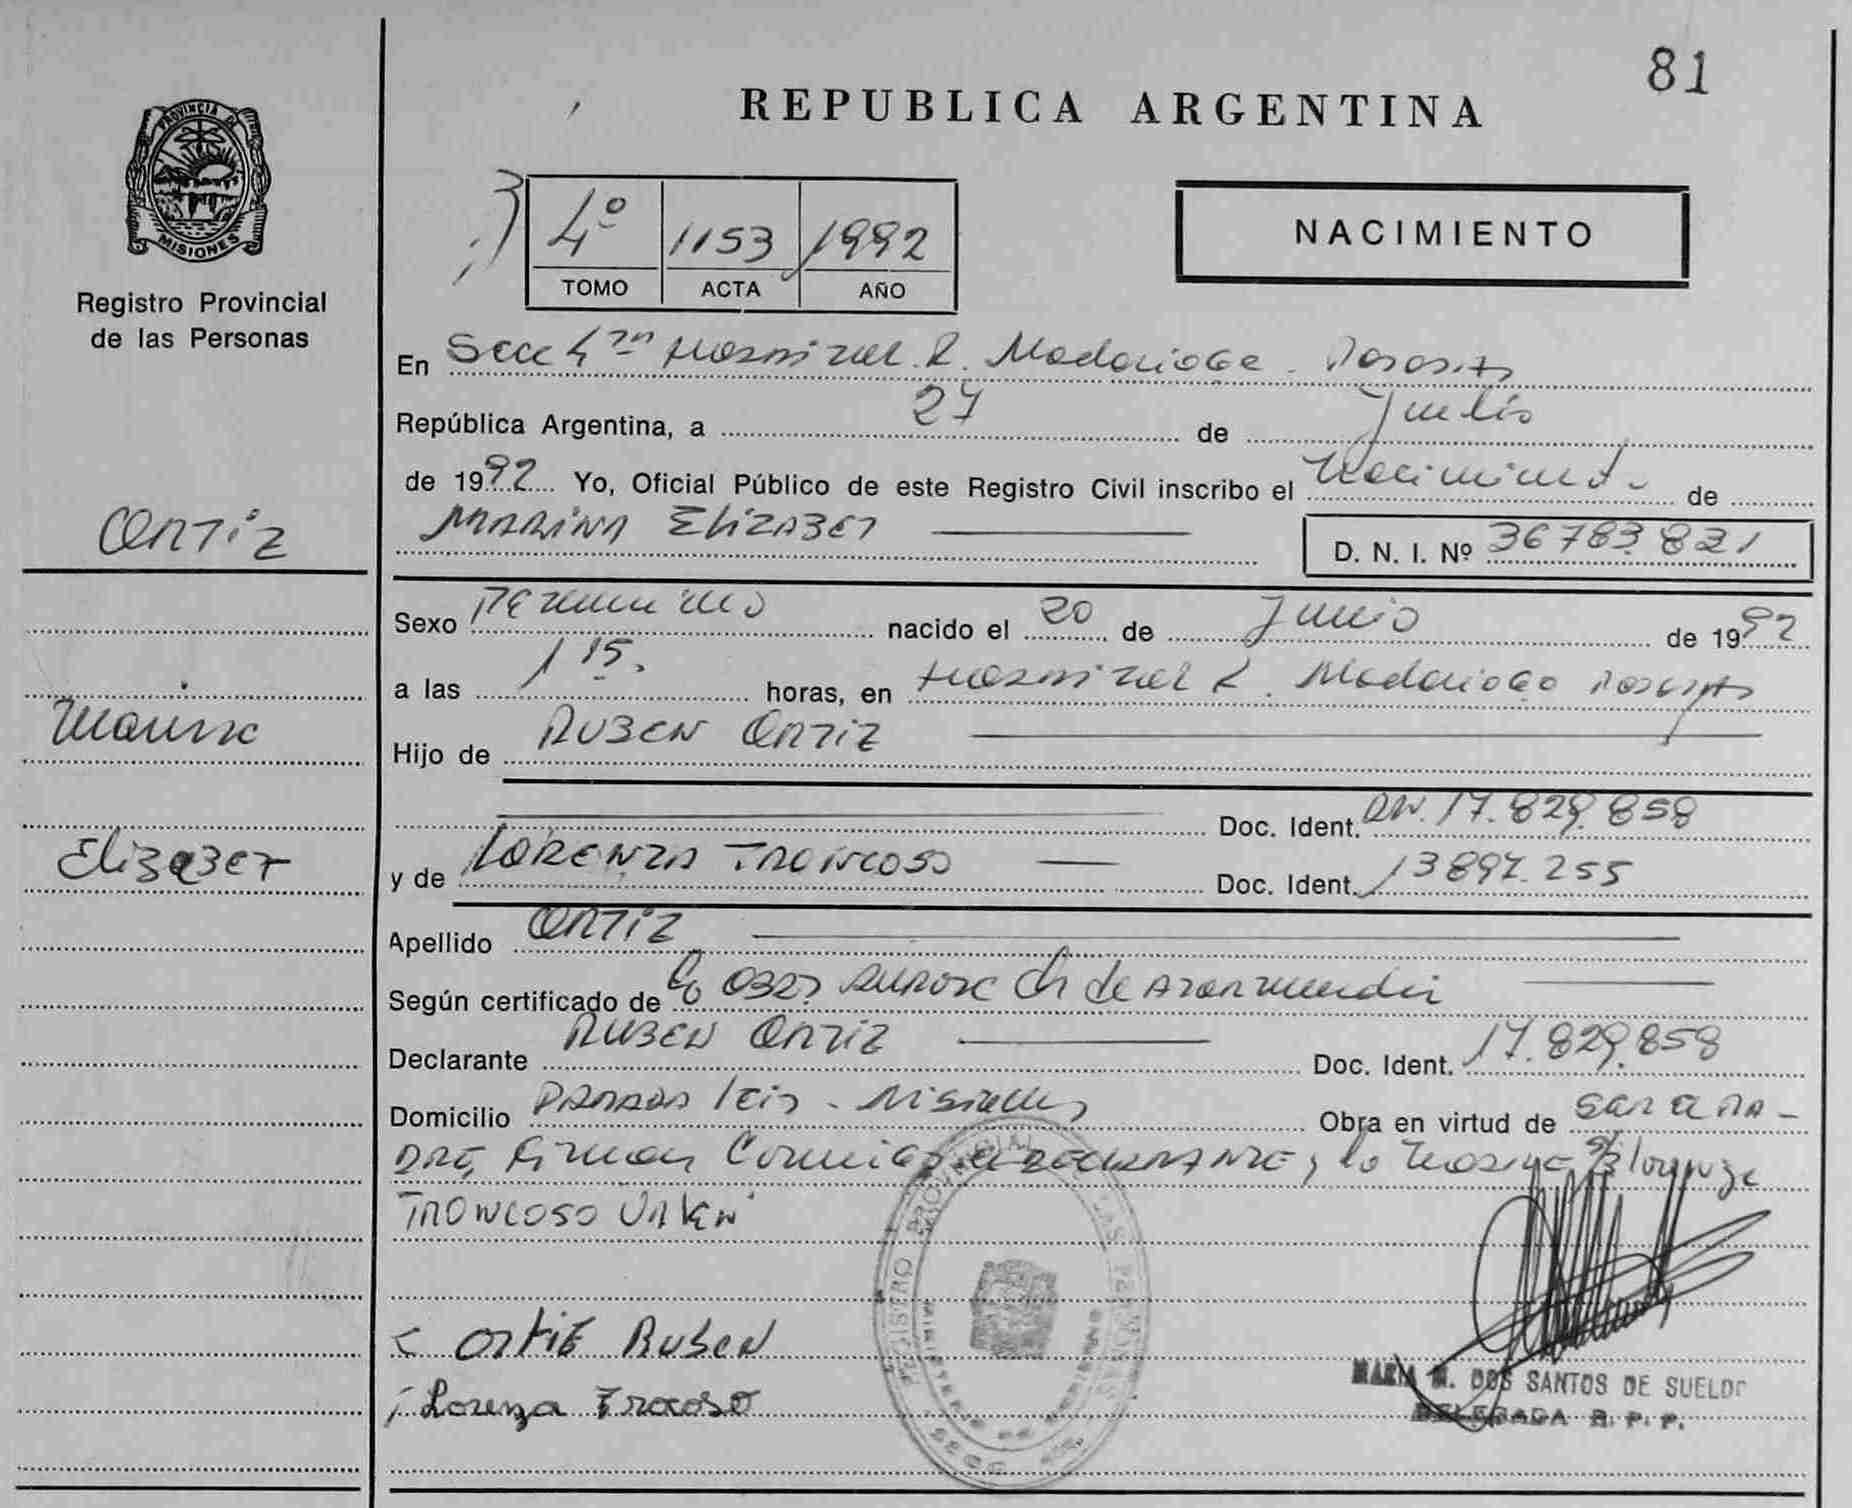 81
REPUBLICA ARGENTINA
PROVINCIA DE
MISIONES
Registro Provincial
de las Personas
4º 1153 1992
TOMO ACTA AÑO
NACIMIENTO
En Secc 4ta Hospital R. Madariaga. Posadas
República Argentina, a 27 de Julio
de 1992 Yo, Oficial Público de este Registro Civil inscribo el Nacimiento de
ORTIZ
MARINA ELIZABET
D. N. I. Nº 36783.821
Sexo Femenino nacido el 20 de Junio de 1992
a las 1 15. horas, en Hospital R. Madariaga Posadas
Marina
Hijo de RUBEN ORTIZ
Doc. Ident. DN. 17.829.858
Elizabet
y de LORENZA TRONCOSO Doc. Ident. 13897.255
Apellido ORTIZ
Según certificado de Ch de
Declarante RUBEN ORTIZ Doc. Ident. 17.829.858
Domicilio Misiones Obra en virtud de ser el PA-
DRE, Firman Conmigo el DECLARANTE, la
TRONCOSO
ORTIZ RUBEN
Lorenza Trocoso
REGISTRO PROVINCIAL DE LAS PERSONAS
MARIA M. DOS SANTOS DE SUELDO
DELEGADA R. P. P.